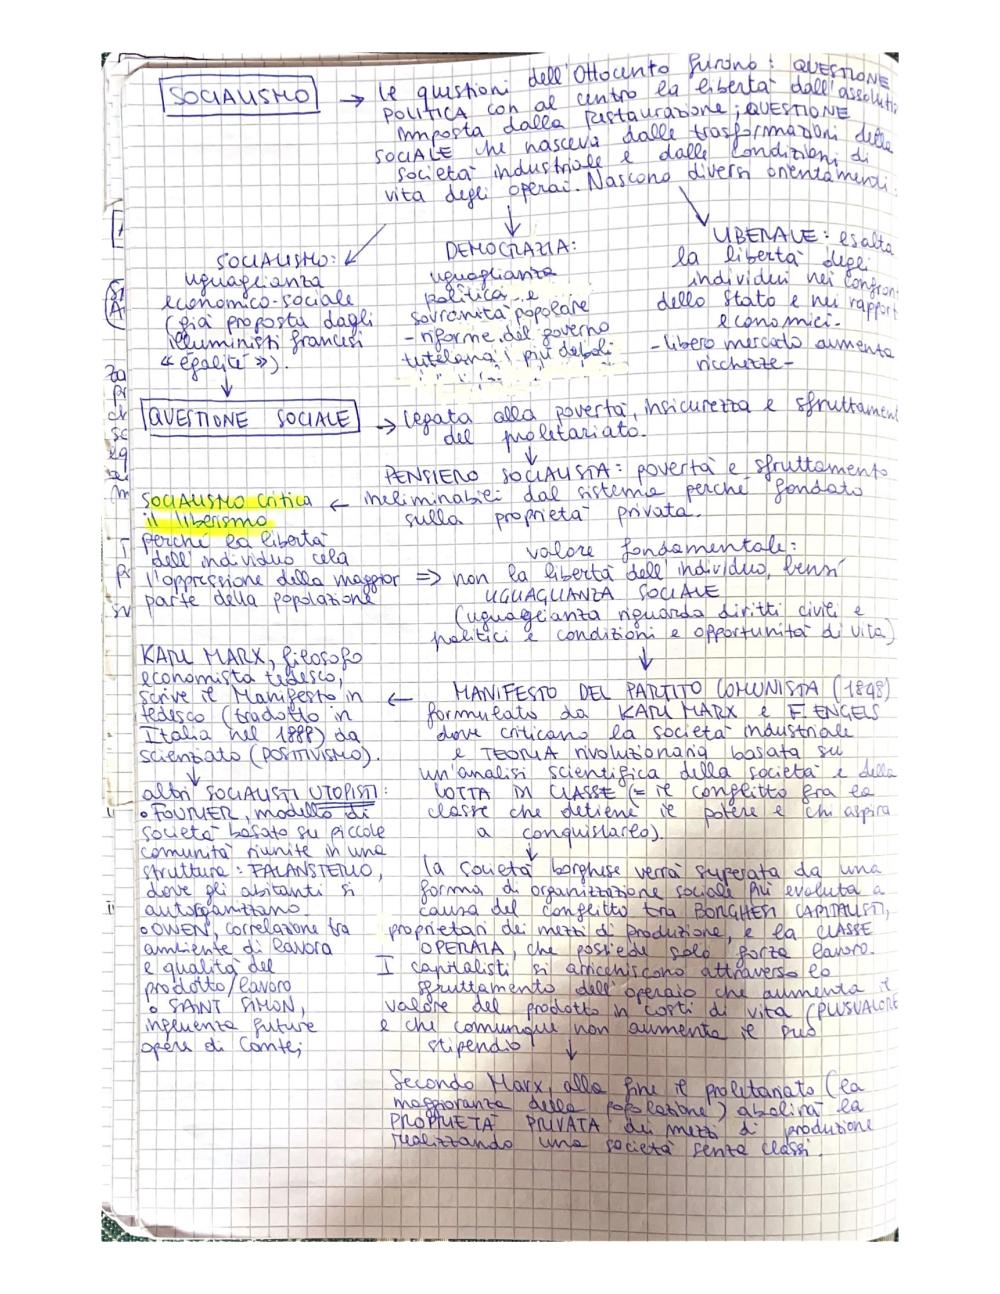 SOCIALISMO → le questioni dell'Ottocento furono: QUESTIONE
POLITICA con al centro la libertà dall'assoluti
imposta dalla Restaurazione; QUESTIONE
SOCIALE che nasceva dalle trasformazioni della
società industriale e dalle condizioni di
vita degli operai. Nascono diversi orientamenti:
SOCIALISMO:
uguaglianza
economico-sociale
(già proposta dagli
illuministi francesi
"égalité").
DEMOCRAZIA:
uguaglianza
politica e
sovranità popolare
- riforme del governo
tutelano i più deboli
LIBERALE: esalta
la libertà degli
individui nei confron
dello Stato e nei rapport
economici.
- libero mercato aumenta
ricchezze -
QUESTIONE SOCIALE → legata alla povertà, insicurezza e sfruttamen
del proletariato.
PENSIERO SOCIALISTA: povertà e sfruttamento
ineliminabili dal sistema perché fondato
sulla proprietà privata.
SOCIALISMO critica ←
il liberismo
perché la libertà
dell'individuo cela
l'oppressione della maggior =>
parte della popolazione
valore fondamentale:
non la libertà dell'individuo, bensì
UGUAGLIANZA SOCIALE
(uguaglianza riguarda diritti civili e
politici e condizioni e opportunità di vita)
MANIFESTO DEL PARTITO COMUNISTA (1848)
formulato da KARL MARX e F. ENGELS
dove criticano la società industriale
e TEORIA rivoluzionaria basata su
un'analisi scientifica della società e della
LOTTA DI CLASSE (= il conflitto fra la
classe che detiene il potere e chi aspira
a conquistarlo).
KARL MARX, filosofo
economista tedesco,
scrive il Manifesto in ←
tedesco (tradotto in
Italia nel 1888) da
scienziato (POSITIVISMO).
altri SOCIALISTI UTOPISTI:
• FOURIER, modello di
società basato su piccole
comunità riunite in una
struttura: FALANSTERIO,
dove gli abitanti si
autorganizzano.
• OWEN, correlazione tra
ambiente di lavoro
e qualità del
prodotto/lavoro
• SAINT SIMON,
influenza future
opere di Comte;
la società borghese verrà superata da una
forma di organizzazione sociale più evoluta a
causa del conflitto tra BORGHESI CAPITALISTI,
proprietari dei mezzi di produzione, e la CLASSE
OPERAIA, che possiede solo forza lavoro.
I capitalisti si arricchiscono attraverso lo
sfruttamento dell'operaio che aumenta il
valore del prodotto in costi di vita (PLUSVALORE
e che comunque non aumenta il suo
stipendio
Secondo Marx, alla fine il proletariato (la
maggioranza della popolazione) abolirà la
PROPRIETÀ PRIVATA dei mezzi di produzione
realizzando una società senza classi.